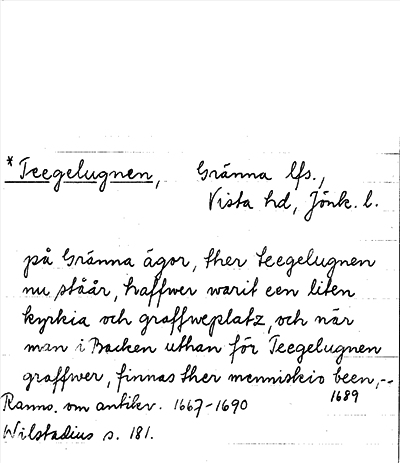 *Teegelugnen, Gränna lfs.,
Vista hd, Jönk. l.
på Gränna ägor, ther teegelugnen
nu ståår, haffwer warit een liten
kyrkia och graffweplatz, och när
man i Backen uthan för Teegelugnen
graffwer, finnas ther menniskio been,--
1689
Ranns. om antikv. 1667-1690
Wilstadius s. 181.